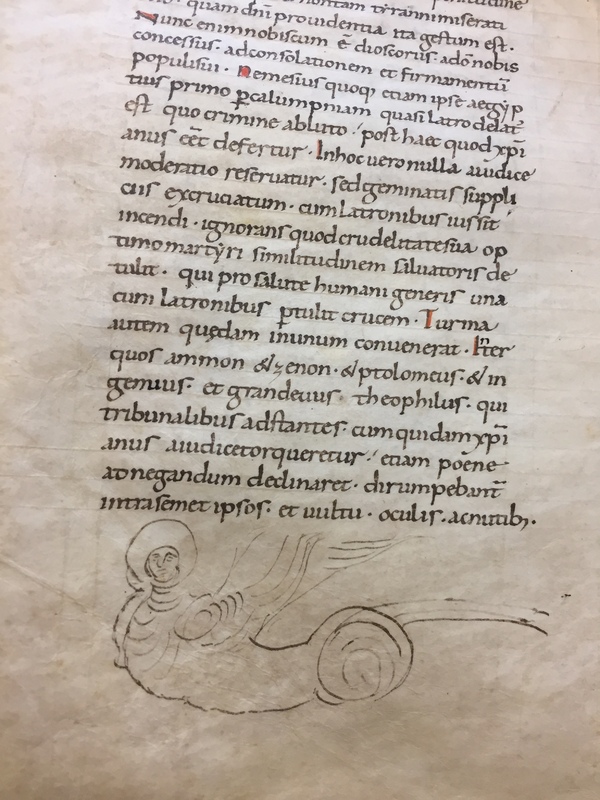 quam dñi prouidentia ita gestum est.
Nunc enim nobiscum ẽ dioscorus. adõ nobis
concessus. ad consolationem et firmamentũ
populi sui. Nemesius quoq; etiam ipse aegyp
tius primo ꝑ calumpniam quasi latro delat
est quo crimine abluto. post haec quod xpi
anus eēt defertur. In hoc uero nulla a iudice
moderatio reseruatur. sed geminatis suppli
ciis excruciatum. cum latronibus iussit
incendi. ignorans quod crudelitate sua op
timo martyri similitudinem saluatoris de
tulit. qui pro salute humani generis una
cum latronibus ꝑtulit crucem. Turma
autem quędam in unum conuenerat. Inter
quos ammon & zenon. & ptolomeus. & in
genuus. et grandeuus theophilus. qui
tribunalibus adstantes. cum quidam xpi
anus a iudice torqueretur. etiam poene
ad negandum declinaret. dirumpebant
intra semet ipsos. et uultu. oculis. ac nutib;.